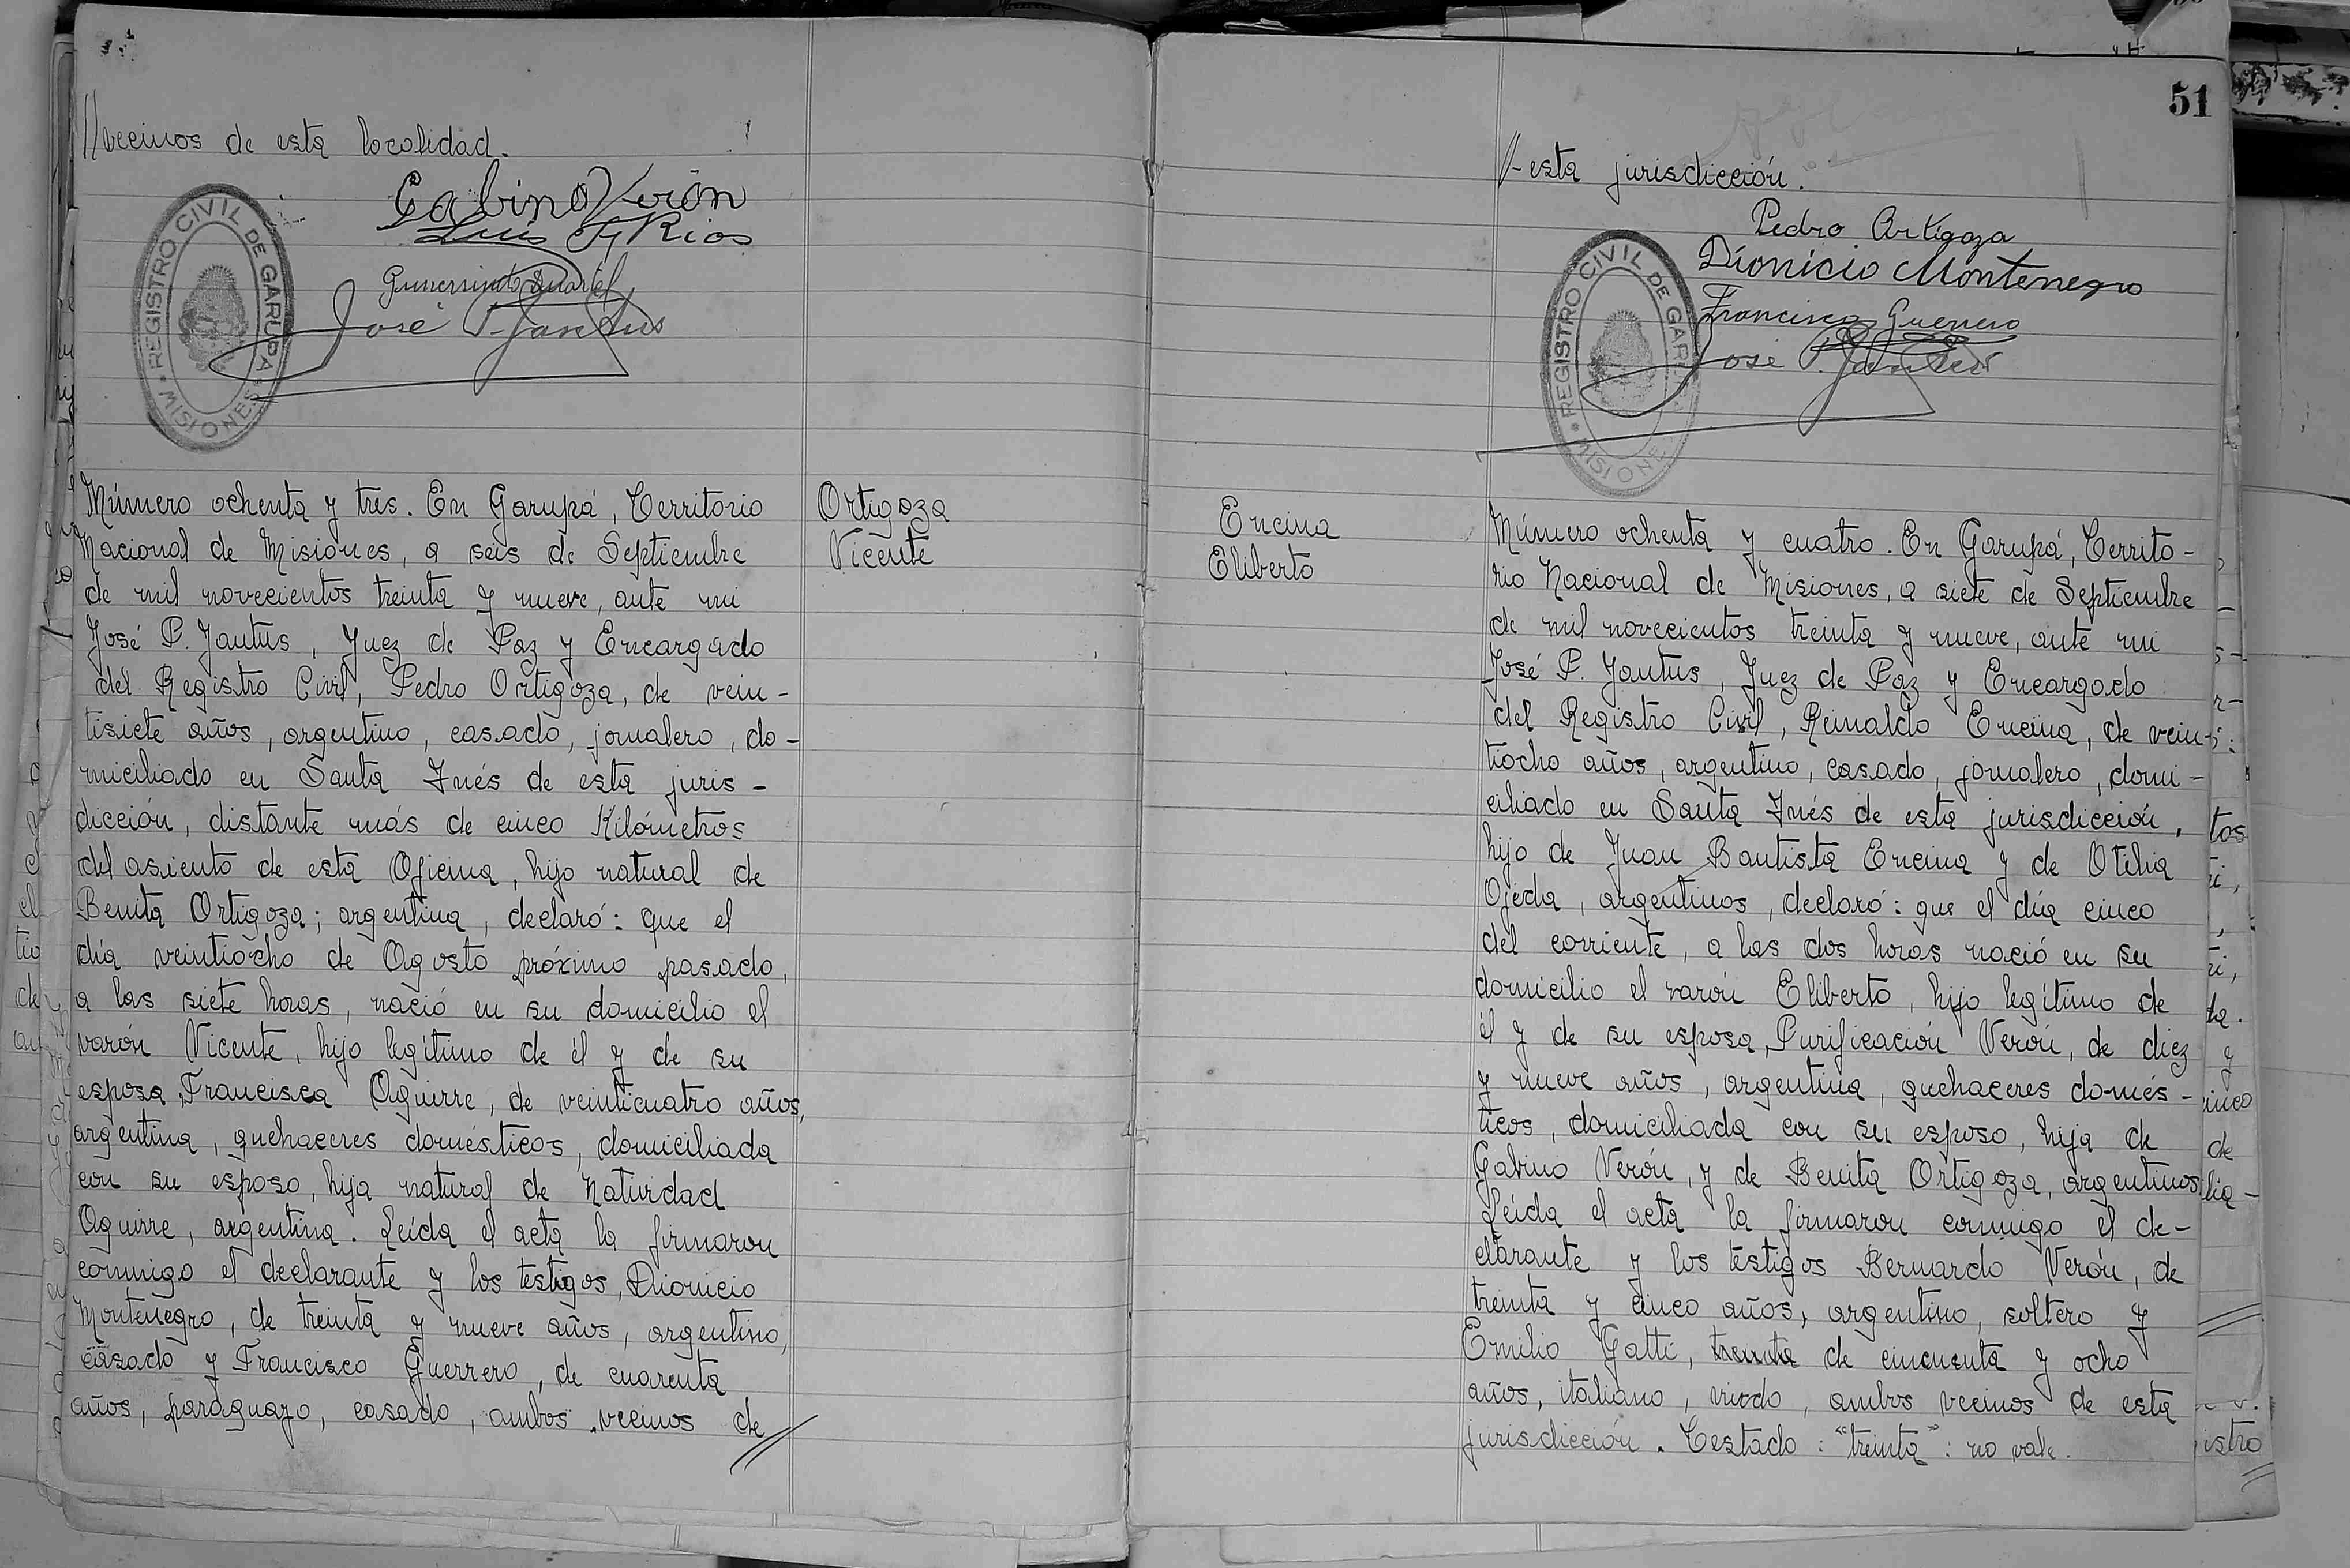 //vecinos de esta localidad.
Gabino Verón
Luis F. Rios
Gumersindo Duarte
José P. Jantus
REGISTRO CIVIL DE GARUPA
MISIONES
Número ochenta y tres. En Garupá, Territorio
Nacional de Misiones, a seis de Septiembre
de mil novecientos treinta y nueve, ante mi
José P. Jantus, Juez de Paz y Encargado
del Registro Civil, Pedro Ortigoza, de vein-
tisiete años, argentino, casado, jornalero, do-
miciliado en Santa Inés de esta juris-
dicción, distante más de cinco Kilómetros
del asiento de esta Oficina, hijo natural de
Benita Ortigoza; argentina, declaró: que el
día veintiocho de Agosto próximo pasado,
a las siete horas, nació en su domicilio el
varón Vicente, hijo legítimo de él y de su
esposa, Francisca Aguirre, de veinticuatro años,
argentina, quehaceres domésticos, domiciliada
con su esposo, hija natural de Natividad
Aguirre, argentina. Leída el acta la firmaron
conmigo el declarante y los testigos, Dionicio
Montenegro, de treinta y nueve años, argentino,
casado y Francisco Guerrero, de cuarenta
años, paraguayo, casado, ambos vecinos de //
Ortigoza
Vicente
51
//-esta jurisdicción.
Pedro Ortigoza
Dionicio Montenegro
Francisco Guerrero
José P. Jantus
REGISTRO CIVIL DE GARUPA
MISIONES
Encina
Eliberto
Número ochenta y cuatro. En Garupá, Territo-
rio Nacional de Misiones, a siete de Septiembre
de mil novecientos treinta y nueve, ante mi
José P. Jantus, Juez de Paz y Encargado
del Registro Civil, Reinaldo Encina, de vein-
tiocho años, argentino, casado, jornalero, domi-
ciliado en Santa Inés de esta jurisdicción,
hijo de Juan Bautista Encina y de Otilia
Ojeda, argentinos, declaró: que el día cinco
del corriente, a las dos horas nació en su
domicilio el varón Eliberto, hijo legítimo de
él y de su esposa, Purificación Verón, de diez
y nueve años, argentina, quehaceres domés-
ticos, domiciliada con su esposo, hija de
Gabino Verón, y de Benita Ortigoza, argentinos
Leída el acta la firmaron conmigo el de-
clarante y los testigos Bernardo Verón, de
treinta y cinco años, argentino, soltero y
Emilio Gatti, treinta de cincuenta y ocho
años, italiano, viudo, ambos vecinos de esta
jurisdicción. Testado: "treinta": no vale.